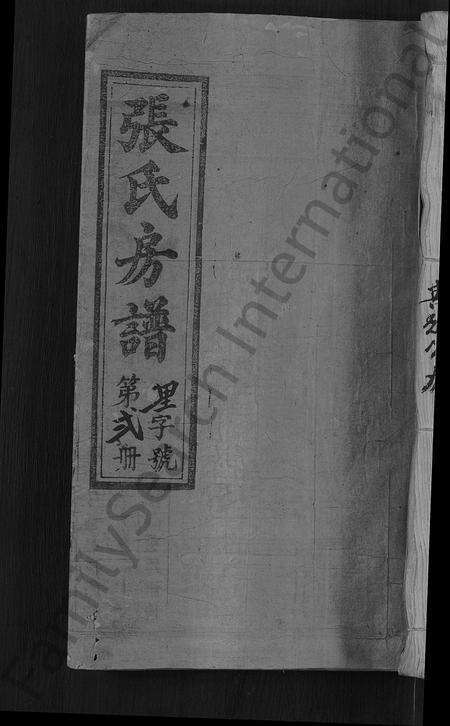 張氏房譜
里字號
第貳冊
FamilySearch International